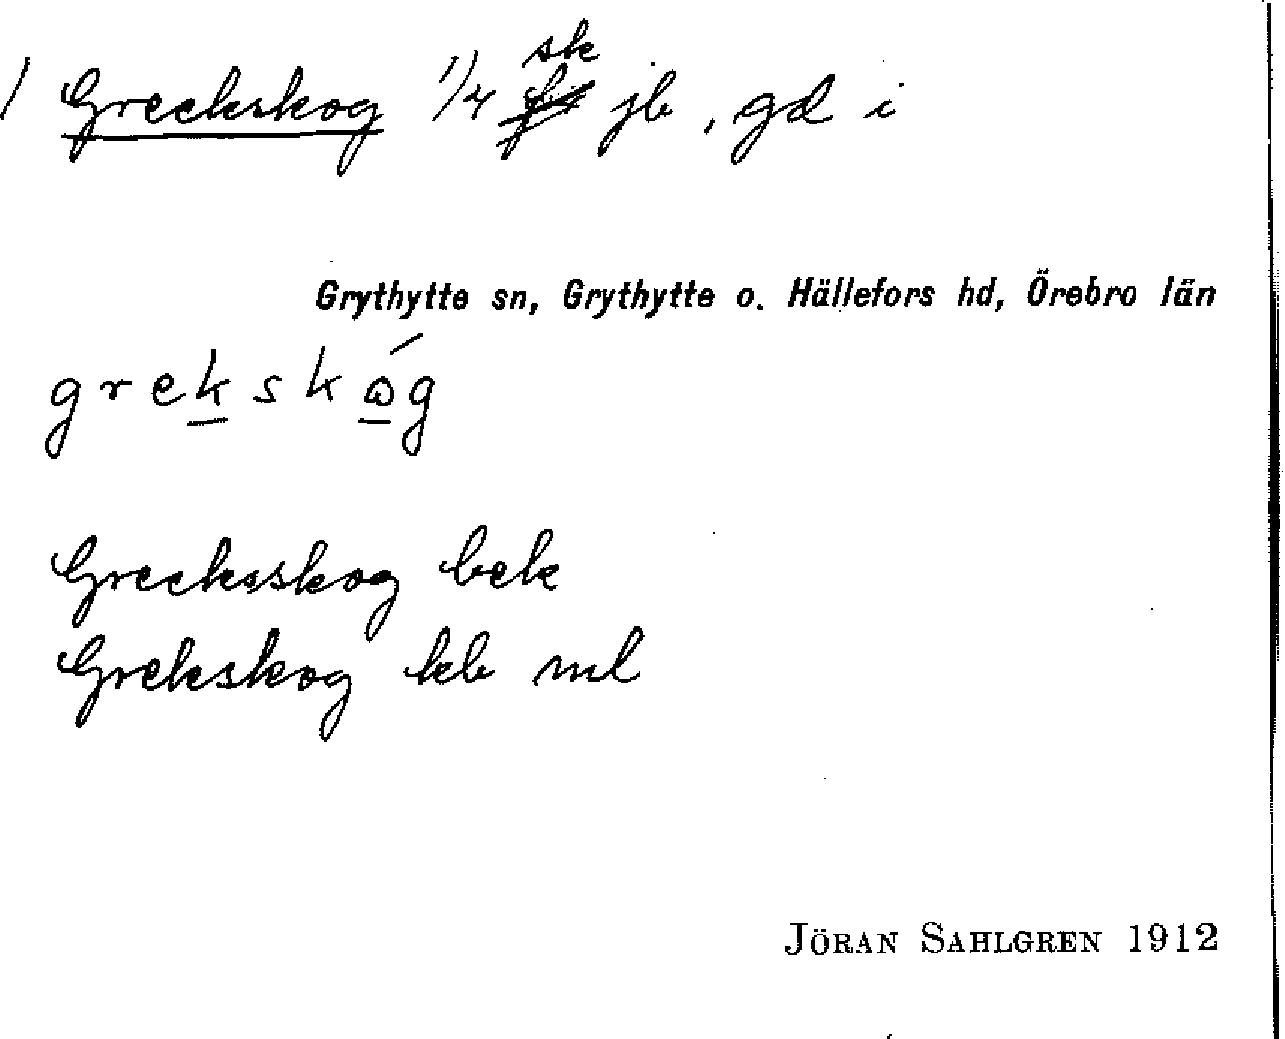 / Greckskog 1/4 sk jb, gd i
Grythytte sn, Grythytte o. Hällefors hd, Örebro län
grekskώg
Grecksskog bek
Grekskog kb ml
JÖRAN SAHLGREN 1912